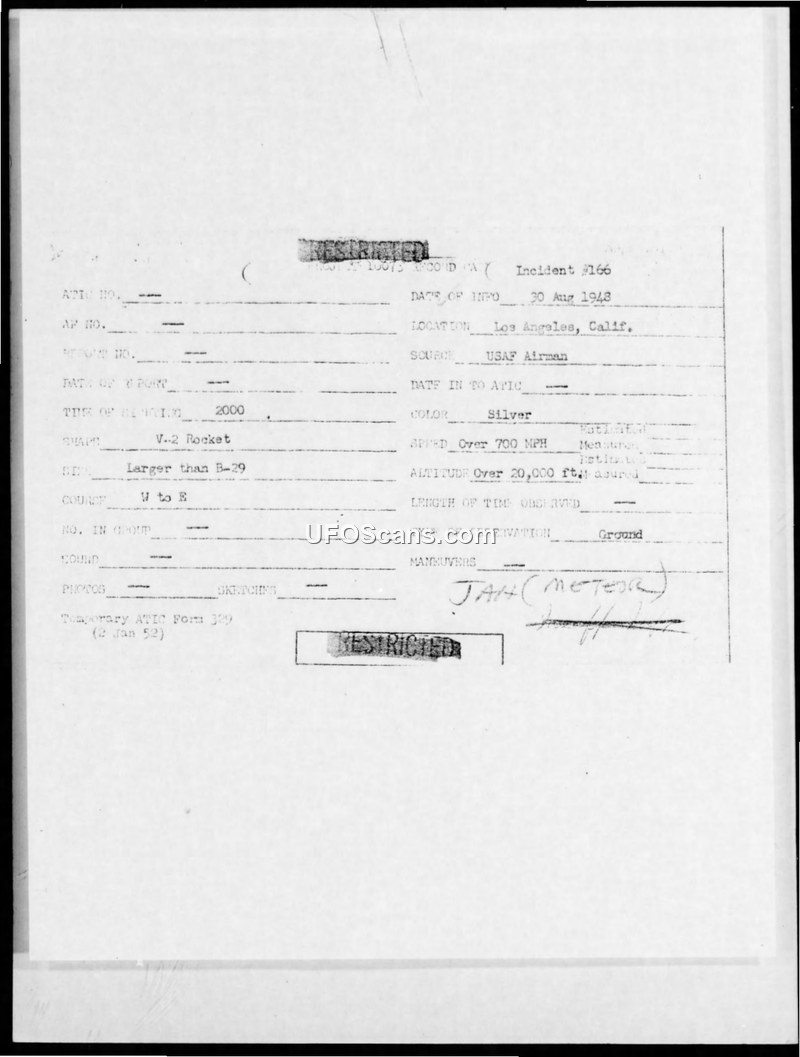 RESTRICTED
PROJECT 10073 RECORD CARD Incident #166
ATIC NO. --- DATE OF INFO 30 Aug 1948
AF NO. --- LOCATION Los Angeles, Calif.
REPORT NO. --- SOURCE USAF Airman
DATE OF REPORT --- DATE IN TO ATIC ---
TIME OF SIGHTING 2000 COLOR Silver
SHAPE V-2 Rocket SPEED Over 700 MPH Estimated Measured
SIZE Larger than B-29 ALTITUDE Over 20,000 ft. Estimated Measured
COURSE W to E LENGTH OF TIME OBSERVED ---
NO. IN GROUP --- TYPE OF OBSERVATION Ground
SOUND --- MANEUVERS ---
PHOTOS --- SKETCHES ---
JAH (METEOR)
Temporary ATIC Form 329
(2 Jan 52)
RESTRICTED
UFOScans.com